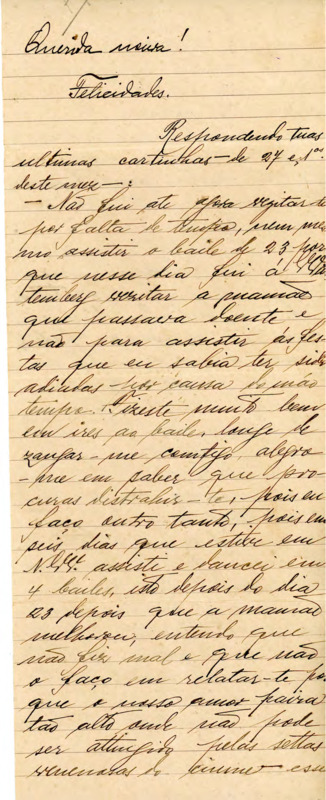 Querida noiva!
Felicidades.
Respondendo tuas
ultimas cartinhas de 27 e 1os
deste mez:
- Não fui até agora vezitar-te
por falta de tempo, nem mes
mo assistir o baile de 23 por
que nesse dia fui á
temberg vezitar a mamãe
que passava doente e
não para assistir ás fes-
tas que eu sabia ter sido
adiadas por causa do mao
tempo. Fizeste muito bem
em ires ao baile, longe de
zangar-me comtigo, alegro
-me em saber que pro
curas distrahir-te, pois eu
faço outro tanto, pois em
seis dias que estive em
assisti e dancei em
4 bailes, isto depois do dia
23 depois que a mamãe
melhorou, entendo que
não fiz mal e que não
o faço em relatar-te por
que o nosso amor paira
tão alto onde não pode
ser attingido pelas settas
venenosas do ciume - esse